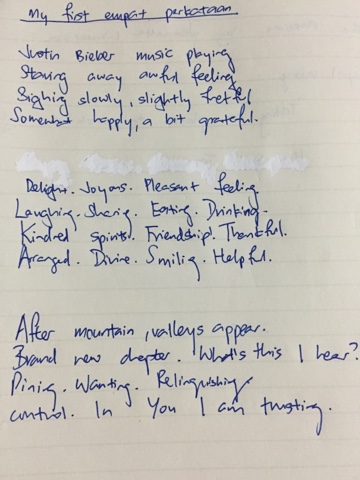 My first empat perkataan
Justin Bieber music playing
Staving away awful feeling
Sighing slowly, slightly fretful
Somewhat happy, a bit grateful.
Delight. Joyous. Pleasant feeling
Laughing. Sharing. Eating. Drinking.
Kindred spirits. Friendship! Thankful.
Arranged. Divine. Smiling. Helpful.
After mountain, valleys appear.
Brand new chapter. What's this I hear?
Pining. Wanting. Relinquishing
control. In You I am trusting.